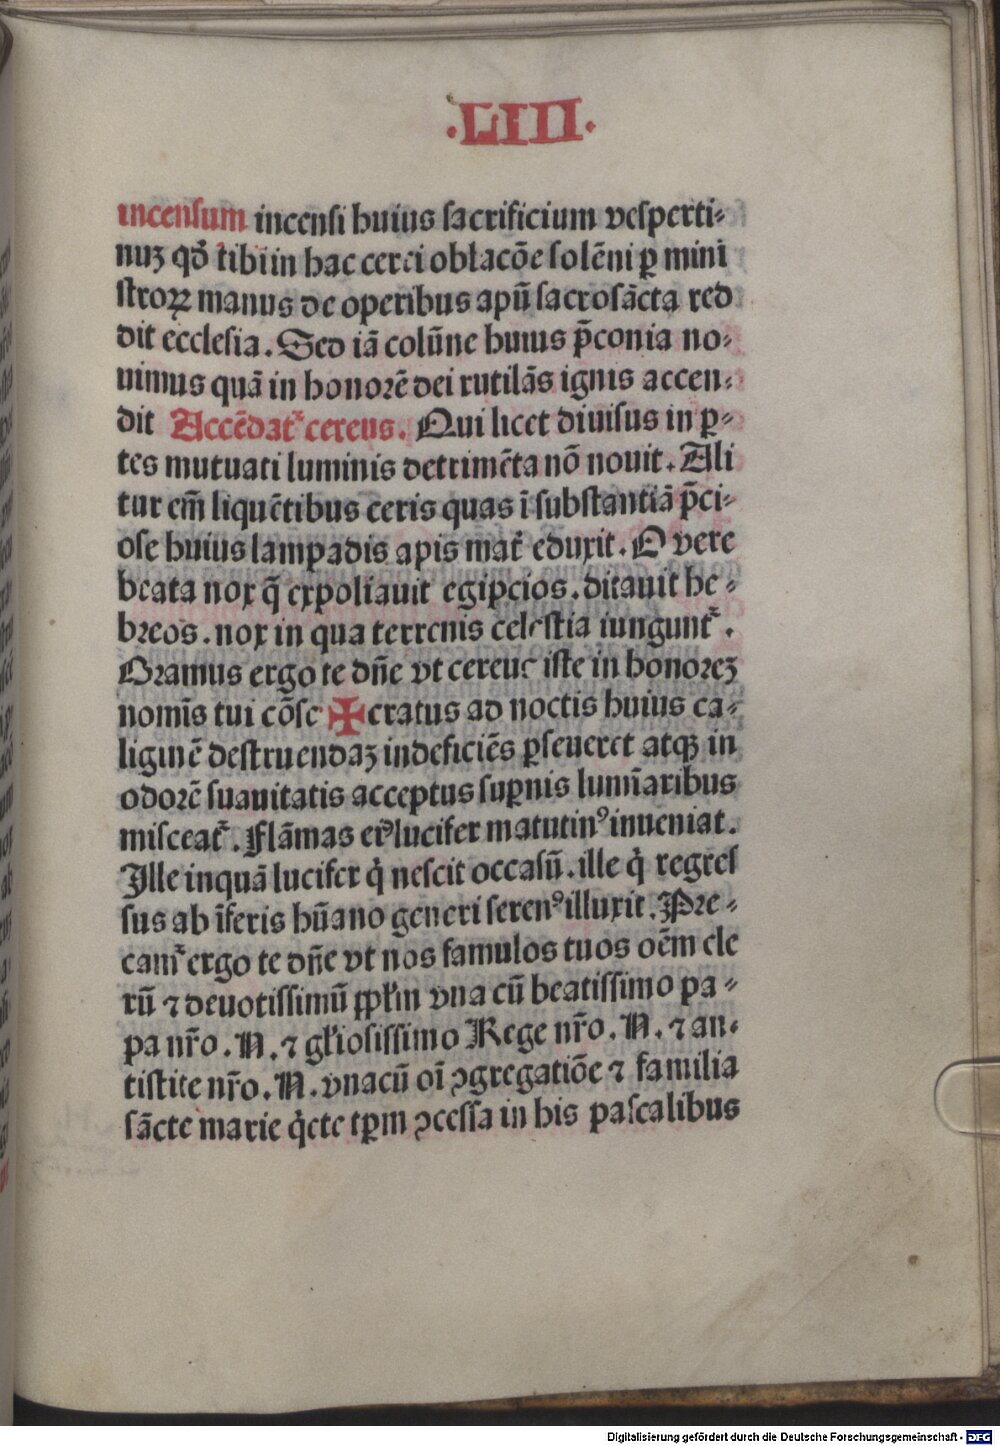 .LIII.
incensum incensi huius sacrificium vesperti-
nuꝫ qđ tibi in hac cerei oblacõe solẽni ꝑ mini
stroꝝ manus de operibus apũ sacrosãcta red
dit ecclesia. Sed iã colũne huius p̃conia no-
uimus quã in honorẽ dei rutilãs ignis accen-
dit Accẽdat᷑ cereus. Qui licet diuisus in ꝑ-
tes mutuati luminis detrimẽta nõ nouit. Ali
tur em̃ liquẽtibus ceris quas ĩ substantiã p̃ci-
ose huius lampadis apis mat̉ eduxit. O vere
beata nox q̃ expoliauit egipcios. ditauit he-
breos. nox in qua terrenis celestia iungunt᷑.
Oramus ergo te dñe vt cereus iste in honoreꝫ
nomĩs tui cõsc ✠ cratus ad noctis huius ca-
liginẽ destruendaꝫ indeficiẽs ꝑseueret atqꝫ in
odorẽ suauitatis acceptus suꝑnis lumĩaribus
misceat᷑. Flãmas eiꝰ lucifer matutinꝰ inueniat.
Ille inquã lucifer q̇ nescit occasũ. ille q̇ regres
sus ab ĩferis hũano generi serenꝰ illuxit. Pre-
cam᷑ ergo te dñe vt nos famulos tuos oẽm cle
rũ ⁊ deuotissimũ ppl̃m vna cũ beatissimo pa-
pa nr̃o. N. ⁊ gl̃iosissimo Rege nr̃o. N. ⁊ an-
tistite nr̃o. N. vnacũ oĩ ꝯgregatiõe ⁊ familia
sãcte marie q̇ete tꝑm ꝯcessa in his pascalibus
Digitalisierung gefördert durch die Deutsche Forschungsgemeinschaft - DFG